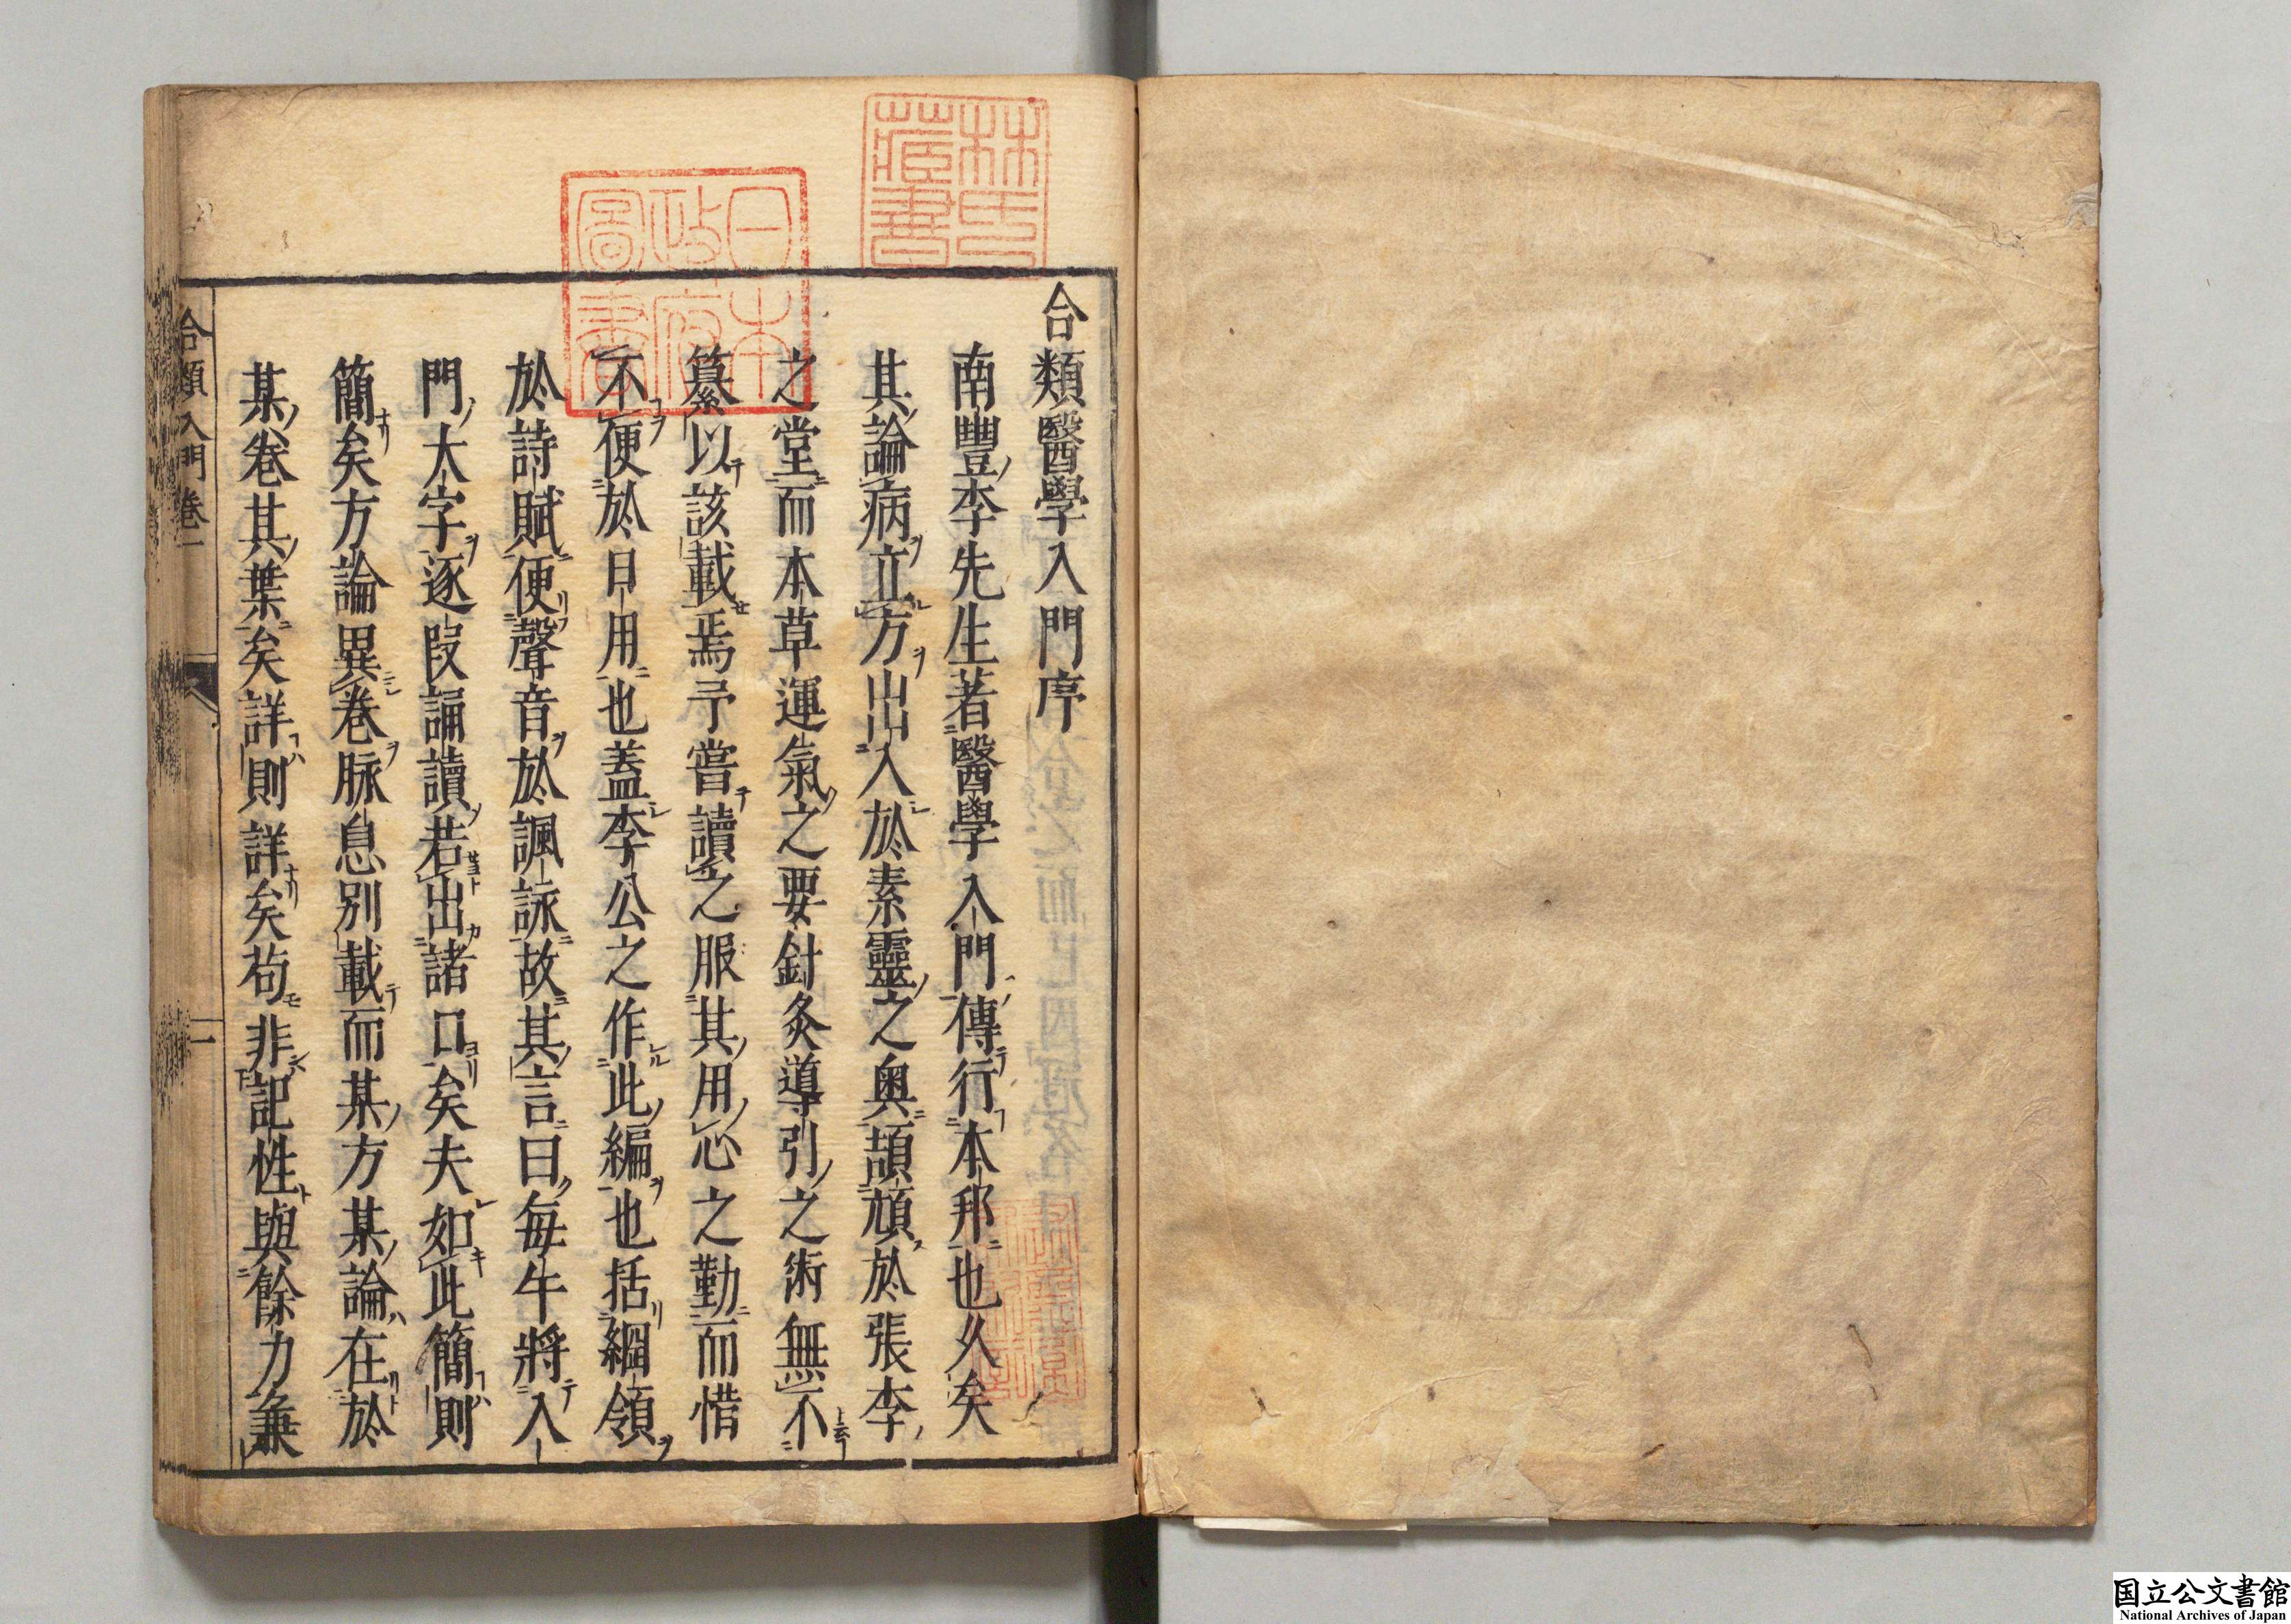 合類醫學入門序
南豐李先生著醫學入門傳行本邦也久矣
其論病立方出入於素靈之奧頡頏於張李
之堂而本草運氣之要針灸導引之術無不
纂以該載焉予嘗讀之服其用心之勤而惜
不便於日用也蓋李公之作此編也括綱領
於詩賦便聲音於諷詠故其言曰每午將入
門大字逐段誦讀若出諸口矣夫如此簡則
簡矣方論異卷脉息別載而某方某論在於
某卷某葉矣詳則詳矣苟非記性與餘力兼
合類入門卷一
一
林氏藏書
日本政府圖書
国立公文書館
National Archives of Japan